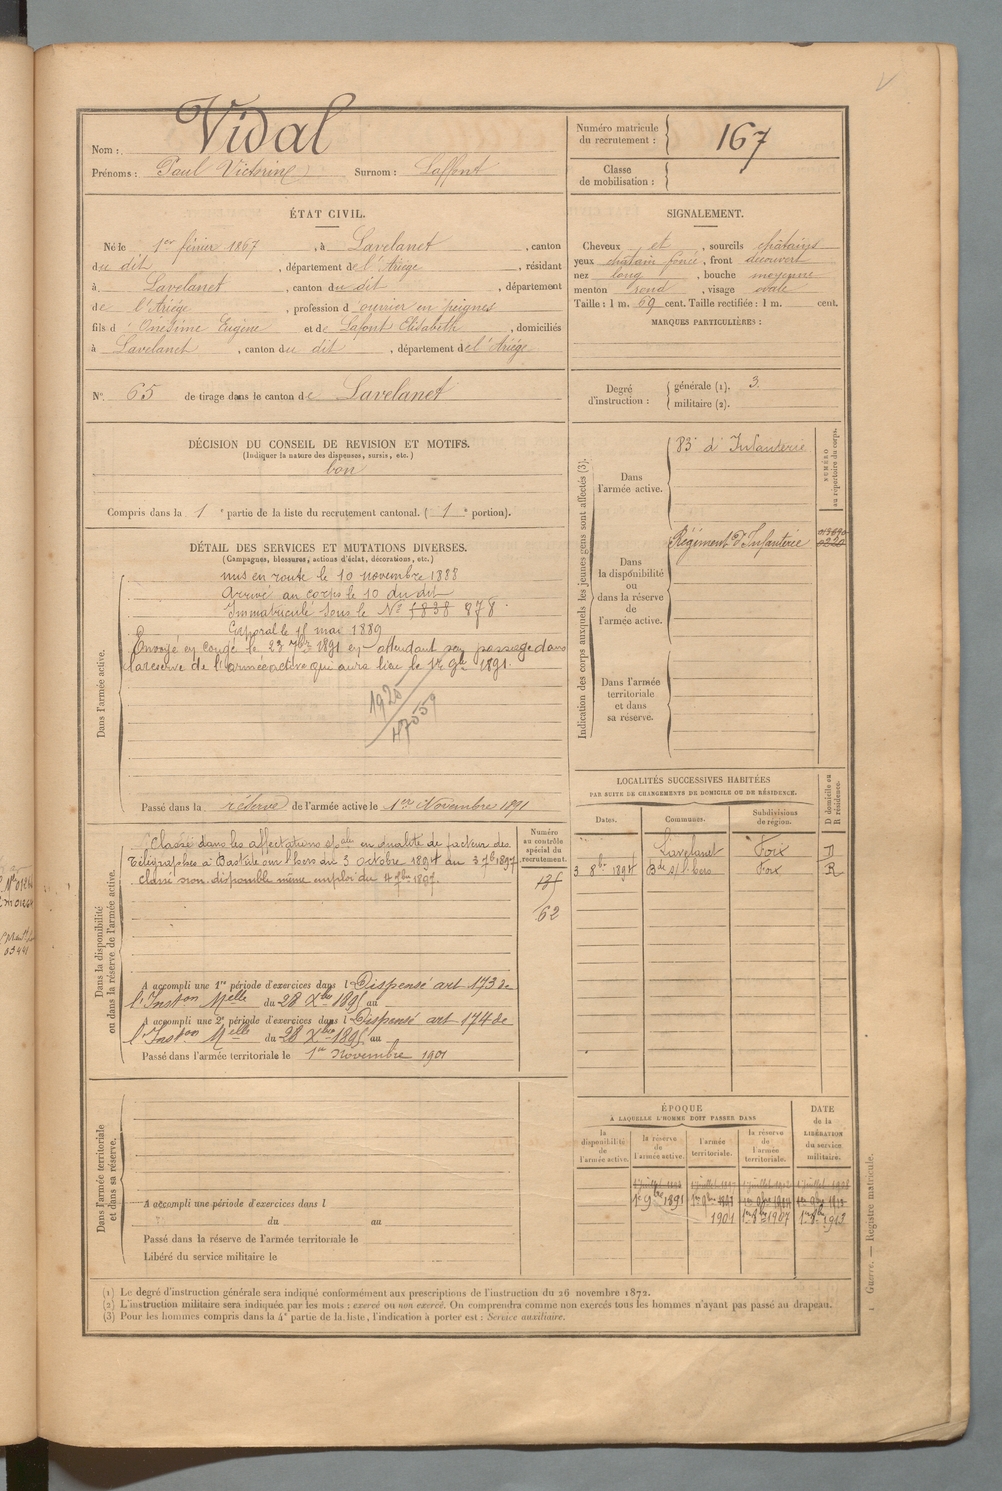 Vidal
Nom :
Prénoms : Paul Victorin Surnom : Laffont
Numéro matricule
du recrutement : 167
Classe
de mobilisation :
ÉTAT CIVIL.
Né le 1er février 1867, à Lavelanet, canton
du dit, département de l'Ariége, résidant
à Lavelanet, canton du dit, département
de l'Ariége, profession d'ouvrier en peignes
fils d'Onésime Eugène et de Lafont Elisabeth, domiciliés
à Lavelanet, canton du dit, département de l'Ariége
N° 65 de tirage dans le canton de Lavelanet
SIGNALEMENT.
Cheveux et, sourcils châtains
yeux chatain foncé, front découvert
nez long, bouche moyenne
menton rond, visage ovale
Taille : 1 m. 69 cent. Taille rectifiée : 1 m. cent.
MARQUES PARTICULIÈRES :
Degré
d'instruction :
générale (1). 3
militaire (2).
DÉCISION DU CONSEIL DE REVISION ET MOTIFS.
(Indiquer la nature des dispenses, sursis, etc.)
bon
Compris dans la 1e partie de la liste du recrutement cantonal. ( 1e portion).
DÉTAIL DES SERVICES ET MUTATIONS DIVERSES.
(Campagnes, blessures, actions d'éclat, décorations, etc.)
Dans l'armée active.
mis en route le 10 novembre 1888
Arrivé au corps le 10 du dit
Immatriculé sous le N° 1838 878
Caporal le 15 mai 1889
Envoyé en congé le 23 7bre 1891 en attendant son passage dans
la réserve de l'armée active qui aura lieu le 1er 9bre 1891.
1925
47559
Passé dans la réserve de l'armée active le 1er Novembre 1891
Indication des corps auxquels les jeunes gens sont affectés (3).
Dans
l'armée active.
83e d'Infanterie
NUMÉRO
au répertoire du corps.
Dans
la disponibilité
ou
dans la réserve
de
l'armée active.
Régiment d'Infanterie
Dans l'armée
territoriale
et dans
sa réserve.
LOCALITÉS SUCCESSIVES HABITÉES
PAR SUITE DE CHANGEMENTS DE DOMICILE OU DE RÉSIDENCE.
D domicile ou
R résidence.
Dates. Communes. Subdivisions
de région.
Lavelanet Foix D
3 8bre 1894 Bde s/l'hers Foix R
Dans la disponibilité
ou dans la réserve de l'armée active.
Numéro
au contrôle
spécial du
recrutement.
Classé dans les affectations spales en qualité de facteur des
Télégraphes à Bastide sur l'hers du 3 octobre 1894 au 3 7bre 1897
Classé non disponible même emploi du 4 7bre 1897.
62
A accompli une 1re période d'exercices dans l Dispensé art 173 de
l'Inston Melle du 28 Xbre 1895 au
A accompli une 2e période d'exercices dans l Dispensé art 174 de
l'Inston Melle du 28 Xbre 1895 au
Passé dans l'armée territoriale le 1er Novembre 1901
Dans l'armée territoriale
et dans sa réserve.
A accompli une période d'exercices dans l
du au
Passé dans la réserve de l'armée territoriale le
Libéré du service militaire le
ÉPOQUE
A LAQUELLE L'HOMME DOIT PASSER DANS
DATE
de la
LIBÉRATION
du service
militaire.
la
disponibilité
de
l'armée active.
la réserve
de
l'armée active.
l'armée
territoriale.
la réserve
de
l'armée
territoriale.
1er 9bre 1891
1901 1er 8bre 1907 1er 8bre 1913
(1) Le degré d'instruction générale sera indiqué conformément aux prescriptions de l'instruction du 26 novembre 1872.
(2) L'instruction militaire sera indiquée par les mots : exercé ou non exercé. On comprendra comme non exercés tous les hommes n'ayant pas passé au drapeau.
(3) Pour les hommes compris dans la 4e partie de la liste, l'indication à porter est : Service auxiliaire.
Guerre. — Registre matricule.